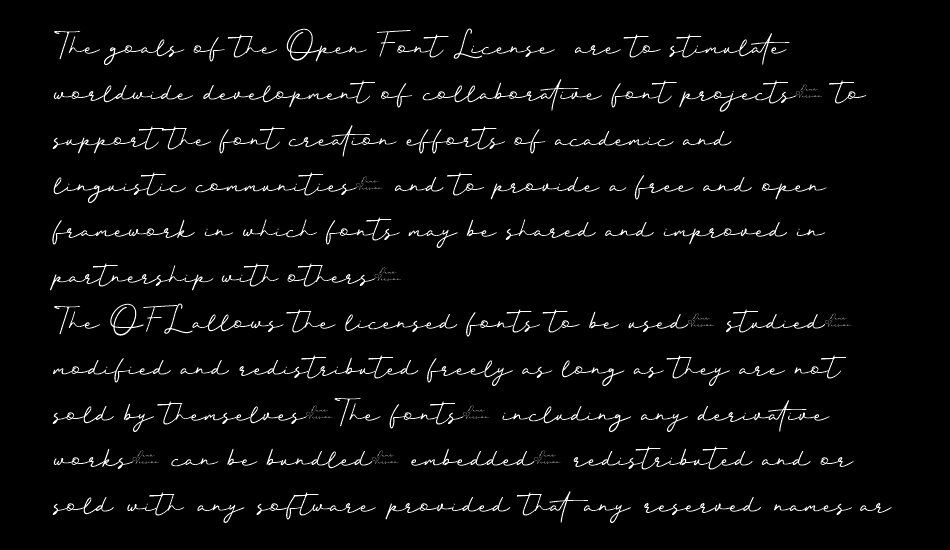 The goals of the Open Font License are to stimulate
worldwide development of collaborative font projects to
support the font creation efforts of academic and
linguistic communities and to provide a free and open
framework in which fonts may be shared and improved in
partnership with others
The OFL allows the licensed fonts to be used studied
modified and redistributed freely as long as they are not
sold by themselves The fonts including any derivative
works can be bundled embedded redistributed and or
sold with any software provided that any reserved names ar